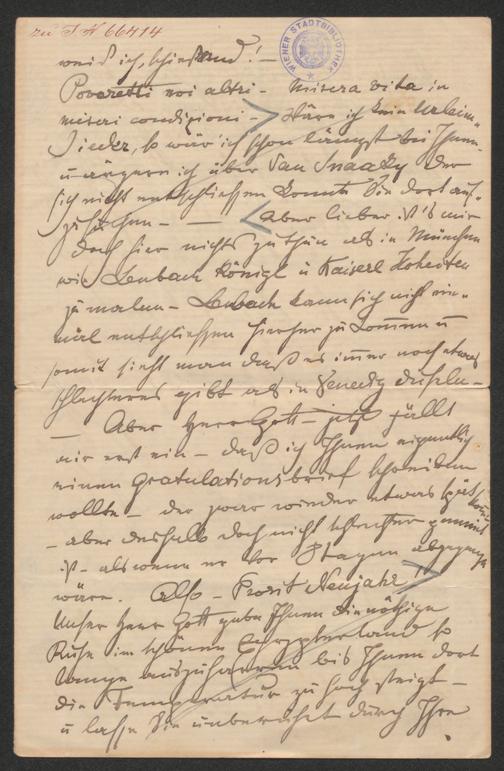 zu I N 66414
WIENER STADTBIBLIOTHEK
weiß ich, !—
Poveretti noi altri - Misera vita in
miseri condizioni — Wäre ich kein Urlein-
sieder, so wär ich schon längst bei Ihnen
u ärgern ich über Van Snaaky der
sich nicht entschließen konnte Sie dort auf-
zusuchen — — Aber lieber ist's mir
doch hier nichts zu thun als in München
wie Lenbach Königl u Kaiserl Hoheiten
zu malen — Lenbach kann sich nicht ein-
mal entschließen hierher zu kommen u
somit sieht man daß es immer noch etwas
schlechteres gibt als in Venedig duseln —
— Aber Herr Gott — jetzt fällt
mir erst ein — daß ich Ihnen eigentlich
einen Gratulationsbrief schreiben
wollte — der zwar wieder etwas spät kommt
— aber deshalb doch nicht schlechter gemeint
ist — als wenn er vor 8 tagen abgegangen
wäre. Also — Prosit Neujahr!!
Unser Herr Gott gebe Ihnen die nöthige
Ruhe im schönen Egypterland so
lange auszuharren bis Ihnen dort
die Temperatur zu hoch steigt —
u lasse Sie durch Ihre